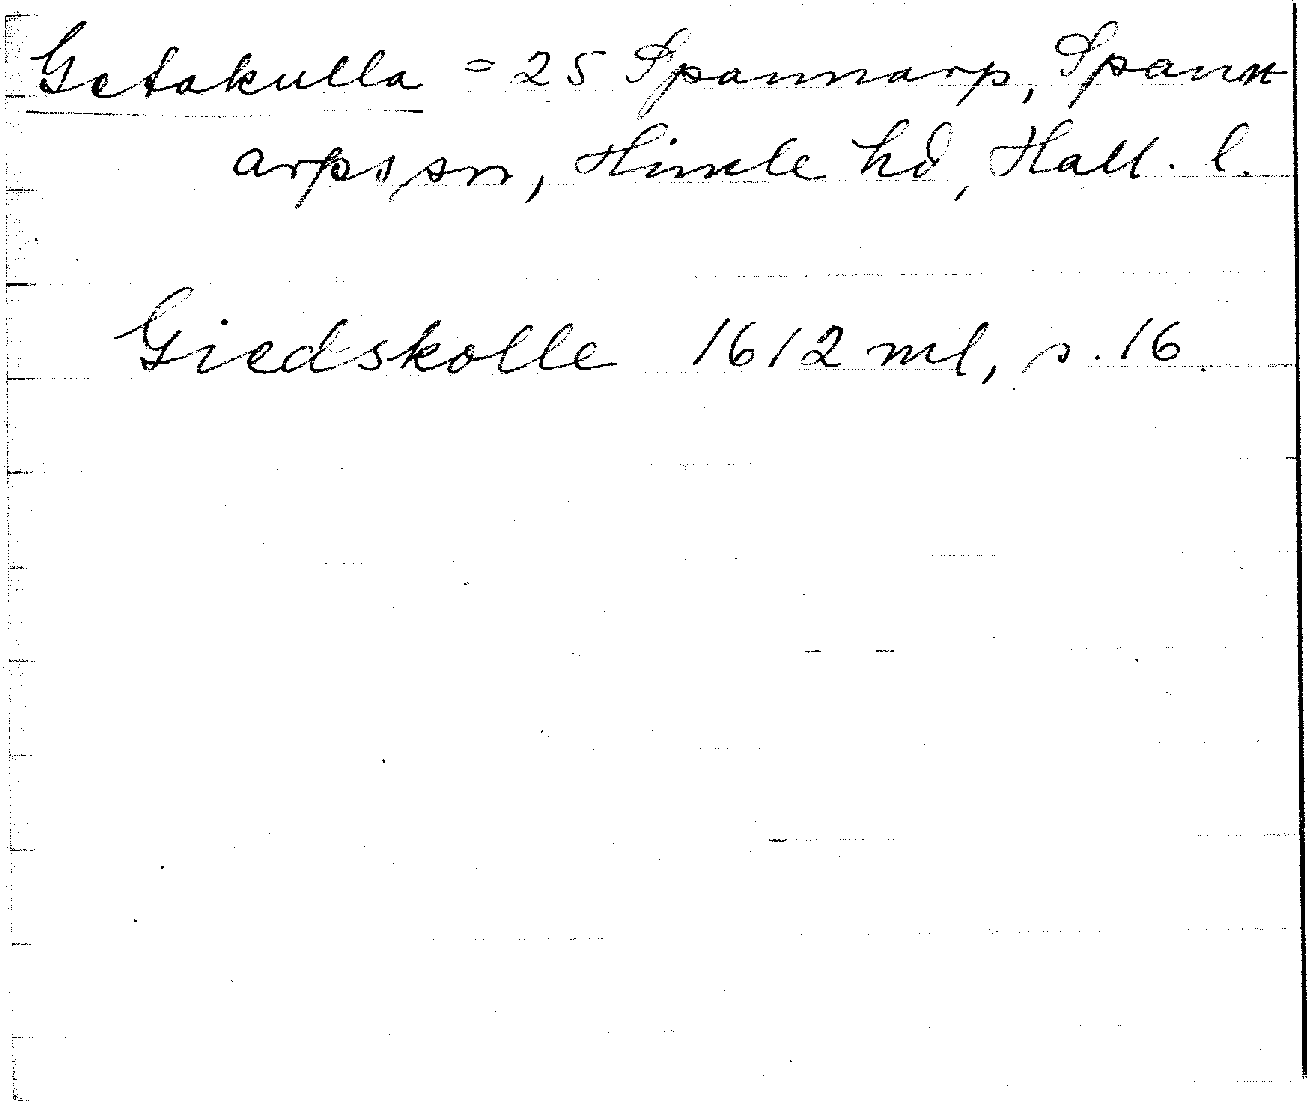 Getakulla = 25 Spannarp, Spann
arps sn, Himle hd, Hall. l.
Giedskolle 1612 ml, s. 16